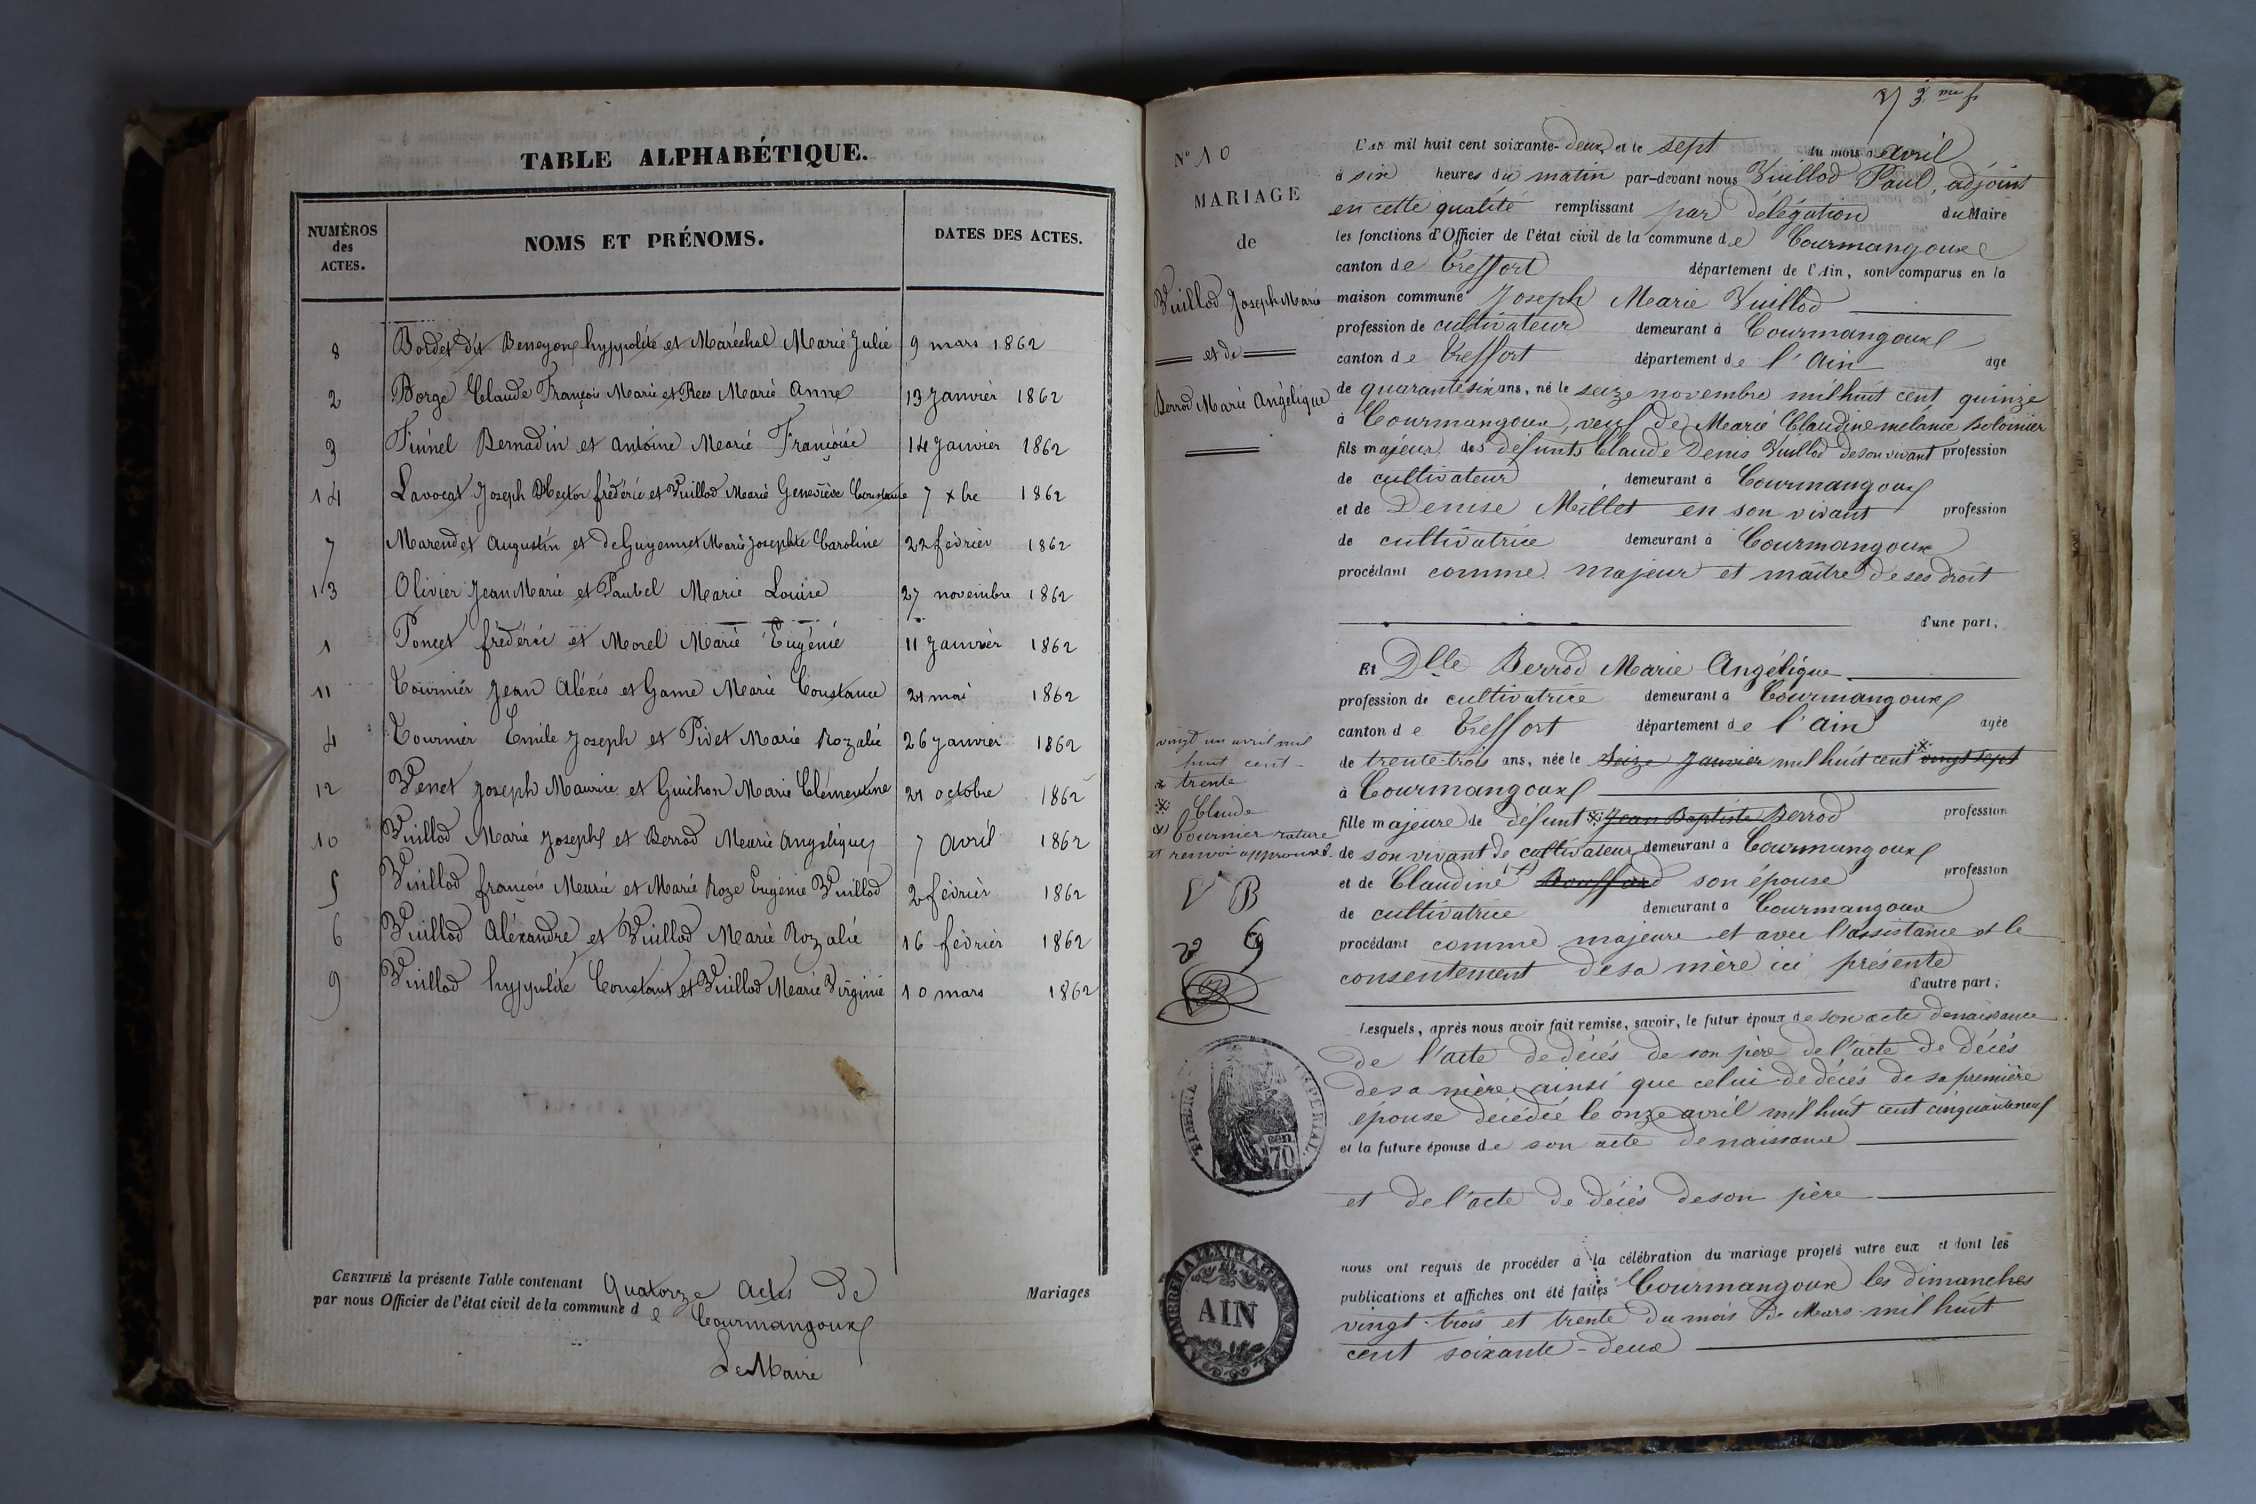 TABLE ALPHABÉTIQUE.
NUMÉROS des ACTES.
NOMS ET PRÉNOMS.
DATES DES ACTES.
8 Bordet dit Benseyon hyppolite et Maréchal Marie Julie 9 mars 1862
2 Borge Claude François Marie et Rees Marie Anne 13 Janvier 1862
3 Finnel Bernadin et Antoine Marie Françoise 14 Janvier 1862
14 Lavocat Joseph Hector frédéric et Vuillod Marie Geneviève Constance 7 xbre 1862
7 Marendet Augustin et deGuyennet Marie Josephte Caroline 22 février 1862
13 Olivier Jean Marie et Paubel Marie Louise 27 novembre 1862
1 Poncet frédéric et Morel Marie Eugénie 11 Janvier 1862
11 Tournier Jean Aléxis et Game Marie Constance 21 mai 1862
4 Tournier Emile Joseph et Pivet Marie Rozalie 26 Janvier 1862
12 Venet Joseph Maurice et Guichon Marie Clémentine 21 octobre 1862
10 Vuillod Marie Joseph et Berrod Marie Angélique 7 avril 1862
5 Vuillod françois Marie et Marie Roze Eugénie Vuillod 2 février 1862
6 Vuillod Aléxandre et Vuillod Marie Rozalie 16 février 1862
9 Vuillod hyppolite Constant et Vuillod Marie Virginie 10 mars 1862
CERTIFIÉ la présente Table contenant Quatorze actes de Mariages
par nous Officier de l'état civil de la commune de Courmangoux
Le Maire
N° 10
MARIAGE
de
Vuillod Joseph Marie
et de
Berrod Marie Angélique
vingt un avril mil
huit cent
trente
Claude
Tournier rature
et renvoi approuvés
V B
TIMBRE IMPÉRIAL
cen 70
AIN
L'an mil huit cent soixante-deux et le sept du mois d'avril
à six heures du matin par-devant nous Vuillod Paul, adjoint
en cette qualité remplissant par délégation du Maire
les fonctions d'Officier de l'état civil de la commune de Courmangoux
canton de Treffort département de l'Ain, sont comparus en la
maison commune Joseph Marie Vuillod
profession de cultivateur demeurant à Courmangoux
canton de Treffort département de l'Ain age
de quarante six ans, né le seize novembre mil huit cent quinze
à Courmangoux, veuf de Marie Claudine mélanie
fils majeur des défunts Claude Denis Vuillod de son vivant profession
de cultivateur demeurant à Courmangoux
et de Denise Millet en son vivant profession
de cultivatrice demeurant à Courmangoux
procédant comme majeur et maître de ses droit
d'une part,
Et Dlle Berrod Marie Angélique
profession de cultivatrice demeurant à Courmangoux
canton de Treffort département de l'ain agée
de trente-trois ans, née le Seize Janvier mil huit cent vingt sept
à Courmangoux
fille majeure de défunt Jean Baptiste Berrod profession
de son vivant de cultivateur demeurant à Courmangoux
et de Claudine Bouffard son épouse profession
de cultivatrice demeurant à Courmangoux
procédant comme majeure et avec l'assistance et le
consentement de sa mère ici présente
d'autre part,
Lesquels, après nous avoir fait remise, savoir, le futur époux de son acte de naissance
de l'acte de décés de son père de l'acte de décés
de sa mère ainsi que celui de décés de sa première
épouse décédée le onze avril mil huit cent cinquante neuf
et la future épouse de son acte de naissance
et de l'acte de décés de son père
nous ont requis de procéder à la célébration du mariage projeté entre eux et dont les
publications et affiches ont été faites Courmangoux les dimanches
vingt-trois et trente du mois de Mars mil huit
cent soixante-deux